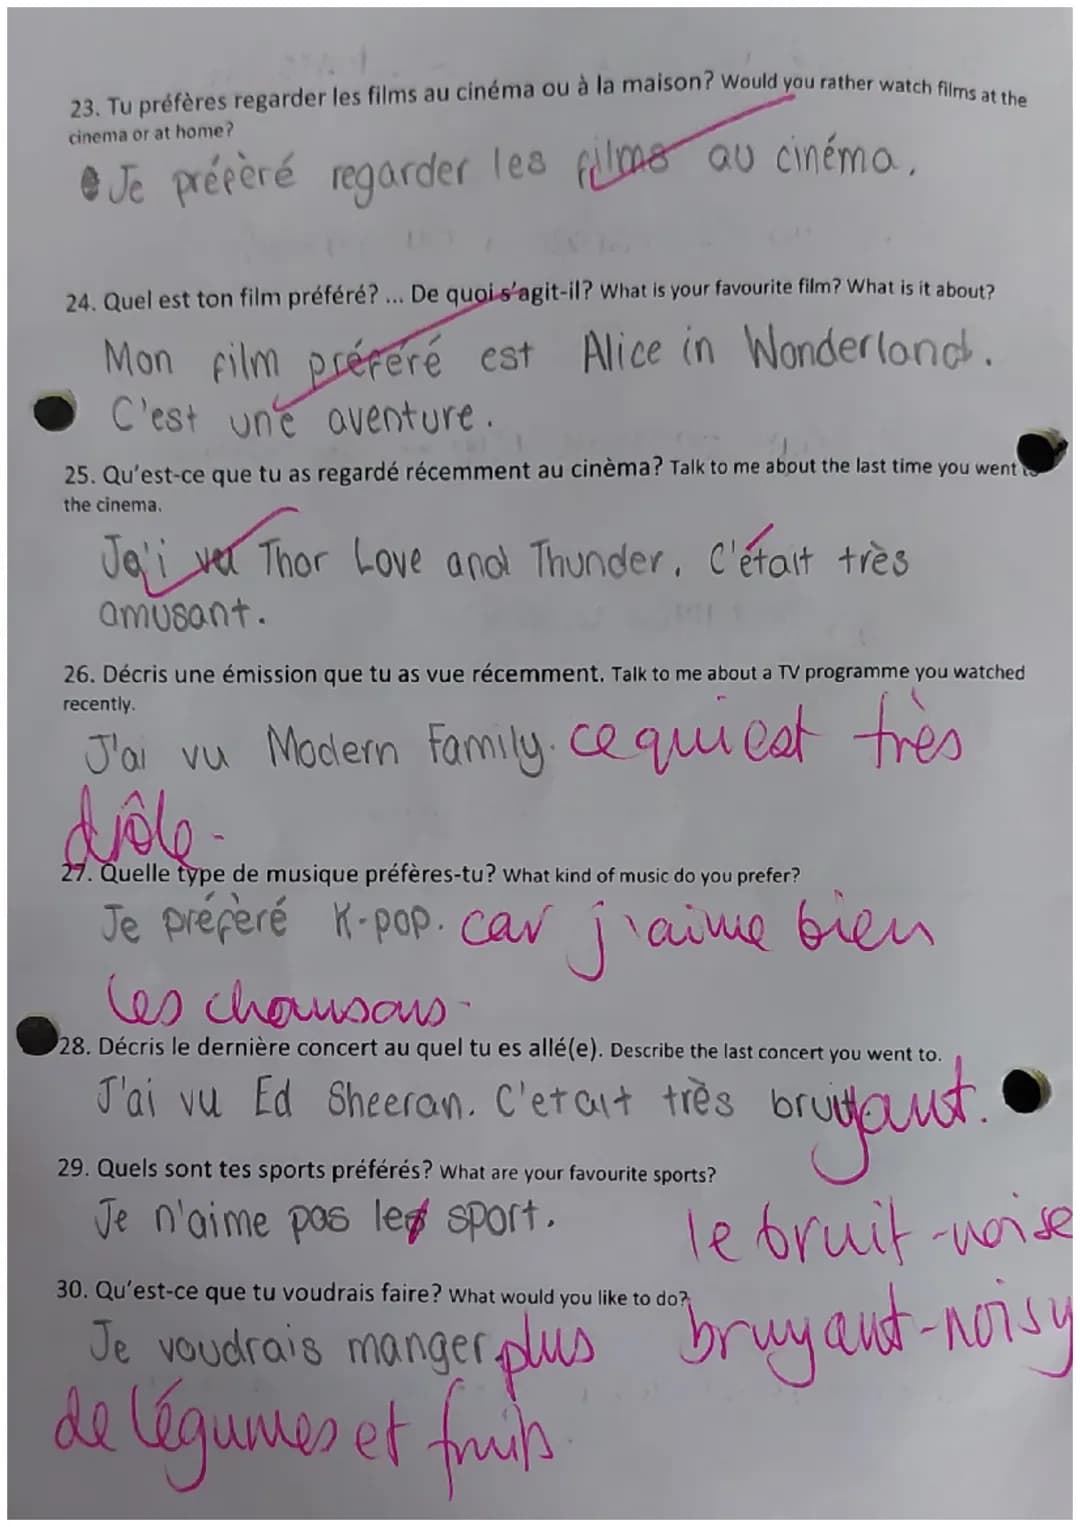 23. Tu préfères regarder les films au cinéma ou à la maison? Would you rather watch films at the
cinema or at home?
Je préfèré regarder les films au cinéma.
24. Quel est ton film préféré? ... De quoi s'agit-il? What is your favourite film? What is it about?
Mon film préféré est Alice in Wonderland.
C'est une aventure.
25. Qu'est-ce que tu as regardé récemment au cinèma? Talk to me about the last time you went to
the cinema.
Ja'i vu Thor Love and Thunder. C'était très
amusant.
26. Décris une émission que tu as vue récemment. Talk to me about a TV programme you watched
recently.
J'ai vu Modern Family. ce qui est très
drôle.
27. Quelle type de musique préfères-tu? What kind of music do you prefer?
Je préfèré K-pop. car j'aime bien
les chansons.
28. Décris le dernière concert au quel tu es allé(e). Describe the last concert you went to.
J'ai vu Ed Sheeran. C'etait très bruyant.
29. Quels sont tes sports préférés? What are your favourite sports?
Je n'aime pas les sport.
le bruit - noise
30. Qu'est-ce que tu voudrais faire? What would you like to do?
Je voudrais manger plus bruyant - noisy
de légumes et fruits.